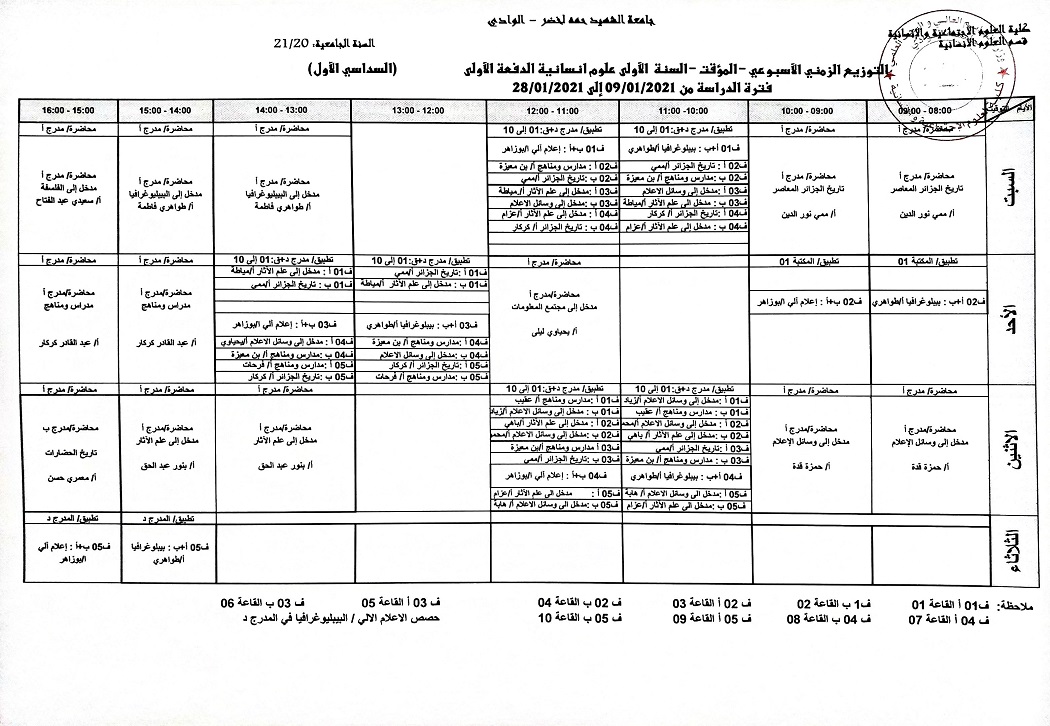 جامعة الشهيد حمه لخضر - الوادي
كلية العلوم الإجتماعية والإنسانية
قسم العلوم الإنسانية
السنة الجامعية: 21/20
التوزيع الزمني الأسبوعي -المؤقت -السنة الأولى علوم انسانية الدفعة الأولى (السداسي الأول)
فترة الدراسة من 09/01/2021 إلى 28/01/2021
الأيام 08:00-09:00 09:00-10:00 10:00-11:00 11:00-12:00 12:00-13:00 13:00-14:00 14:00-15:00 15:00-16:00
السبت
محاضرة/ مدرج أ
محاضرة/مدرج أ
تاريخ الجزائر المعاصر
أ/ ممي نور الدين
محاضرة/ مدرج أ
محاضرة/مدرج أ
تاريخ الجزائر المعاصر
أ/ ممي نور الدين
تطبيق/ مدرج د+ق:01 إلى 10
ف01 أ+ب : بيبلوغرافيا أ/طواهري
ف02 أ : تاريخ الجزائر/ممي
ف02 ب :مدارس ومناهج أ/ بن معيزة
ف03 أ : مدخل إلى وسائل الاعلام
ف03 ب :مدخل إلى علم الأثار أ/مياطة
ف04 أ : تاريخ الجزائر أ/ كركار
ف04 ب : مدخل إلى علم الأثار أ/عزام
تطبيق/ مدرج د+ق:01 إلى 10
ف01 ب+أ : إعلام ألي أ/بوزاهر
ف02 أ : مدارس ومناهج أ/ بن معيزة
ف02 ب : تاريخ الجزائر/ممي
ف03 أ : مدخل إلى علم الأثار أ/مياطة
ف03 ب :مدخل إلى وسائل الاعلام
ف04 أ : مدخل إلى علم الأثار أ/عزام
ف04 ب : تاريخ الجزائر أ/ كركار
محاضرة/ مدرج أ
محاضرة/مدرج أ
مدخل إلى البيبليوغرافيا
أ/ طواهري فاطمة
محاضرة/ مدرج أ
محاضرة/مدرج أ
مدخل إلى البيبليوغرافيا
أ/ طواهري فاطمة
محاضرة/ مدرج أ
محاضرة/مدرج أ
مدخل إلى الفلسفة
أ/ سعيدي عبد الفتاح
الأحد
تطبيق/ المكتبة 01
ف02 أ+ب : بيبلوغرافيا أ/طواهري
تطبيق/ المكتبة 01
ف02 ب+أ : إعلام ألي أ/بوزاهر
محاضرة/ مدرج أ
محاضرة/مدرج أ
مدخل إلى مجتمع المعلومات
أ/ يحياوي ليلى
تطبيق/ مدرج د+ق:01 إلى 10
ف01 أ :تاريخ الجزائر/ممي
ف01 ب : مدخل إلى علم الأثار أ/مياطة
ف03 أ+ب : بيبلوغرافيا أ/طواهري
ف04 أ : مدارس ومناهج أ/ بن معيزة
ف04 ب :مدخل إلى وسائل الاعلام
ف05 أ : تاريخ الجزائر أ/ كركار
ف05 ب : مدارس ومناهج أ/ فرحات
تطبيق/ مدرج د+ق:01 إلى 10
ف01 أ : مدخل إلى علم الأثار أ/مياطة
ف01 ب : تاريخ الجزائر/ممي
ف03 ب+أ : إعلام ألي أ/بوزاهر
ف04 أ :مدخل إلى وسائل الاعلام أ/يحياوي
ف04 ب : مدارس ومناهج أ/ بن معيزة
ف05 أ : مدارس ومناهج أ/ فرحات
ف05 ب :تاريخ الجزائر أ/ كركار
محاضرة/ مدرج أ
محاضرة/مدرج أ
مدراس ومناهج
أ/ عبد القادر كركار
محاضرة/ مدرج أ
محاضرة/مدرج أ
مدراس ومناهج
أ/ عبد القادر كركار
الاثنين
محاضرة/ مدرج أ
محاضرة/مدرج أ
مدخل إلى وسائل الإعلام
أ/ حمزة قدة
محاضرة/ مدرج أ
محاضرة/مدرج أ
مدخل إلى وسائل الإعلام
أ/ حمزة قدة
تطبيق/ مدرج د+ق:01 إلى 10
ف01 أ :مدخل إلى وسائل الاعلام أ/زياد
ف01 ب : مدارس ومناهج أ/ عقيب
ف02 أ :مدخل إلى وسائل الاعلام أ/محمد
ف02 ب :مدخل إلى علم الأثار أ/ باهي
ف03 أ :تاريخ الجزائر أ/ممي
ف03 ب : مدارس ومناهج أ/ بن معيزة
ف04 أ+ب : بيبلوغرافيا أ/طواهري
ف05 أ :مدخل الى وسائل الاعلام أ/ هابة
ف05 ب : مدخل إلى علم الأثار أ/عزام
تطبيق/ مدرج د+ق:01 إلى 10
ف01 أ : مدارس ومناهج أ/ عقيب
ف01 ب : مدخل إلى وسائل الاعلام أ/زياد
ف02 أ :مدخل إلى علم الأثار أ/باهي
ف02 ب :مدخل إلى وسائل الاعلام أ/محمد
ف03 أ : مدارس ومناهج أ/بن معيزة
ف03 ب : تاريخ الجزائر/ممي
ف04 ب+أ : إعلام ألي أ/بوزاهر
ف05 أ : مدخل الى علم الأثار أ/عزام
ف05 ب :مدخل الى وسائل الاعلام أ/ هابة
محاضرة/ مدرج أ
محاضرة/مدرج أ
مدخل إلى علم الأثار
أ/ بنور عبد الحق
محاضرة/ مدرج أ
محاضرة/مدرج أ
مدخل إلى علم الأثار
أ/ بنور عبد الحق
محاضرة/ مدرج أ
محاضرة/مدرج ب
تاريخ الحضارات
أ/ معمري حسن
الثلاثاء
تطبيق/ المدرج د
ف05 أ+ب : بيبلوغرافيا
أ/طواهري
تطبيق/ المدرج د
ف05 ب+أ : إعلام ألي
أ/بوزاهر
ملاحظة: ف01 أ القاعة 01 ف1 ب القاعة 02 ف 02 أ القاعة 03 ف 02 ب القاعة 04 ف 03 أ القاعة 05 ف 03 ب القاعة 06
ف 04 أ القاعة 07 ف 04 ب القاعة 08 ف 05 أ القاعة 09 ف 05 ب القاعة 10 حصص الاعلام الالي / البيبليوغرافيا في المدرج د